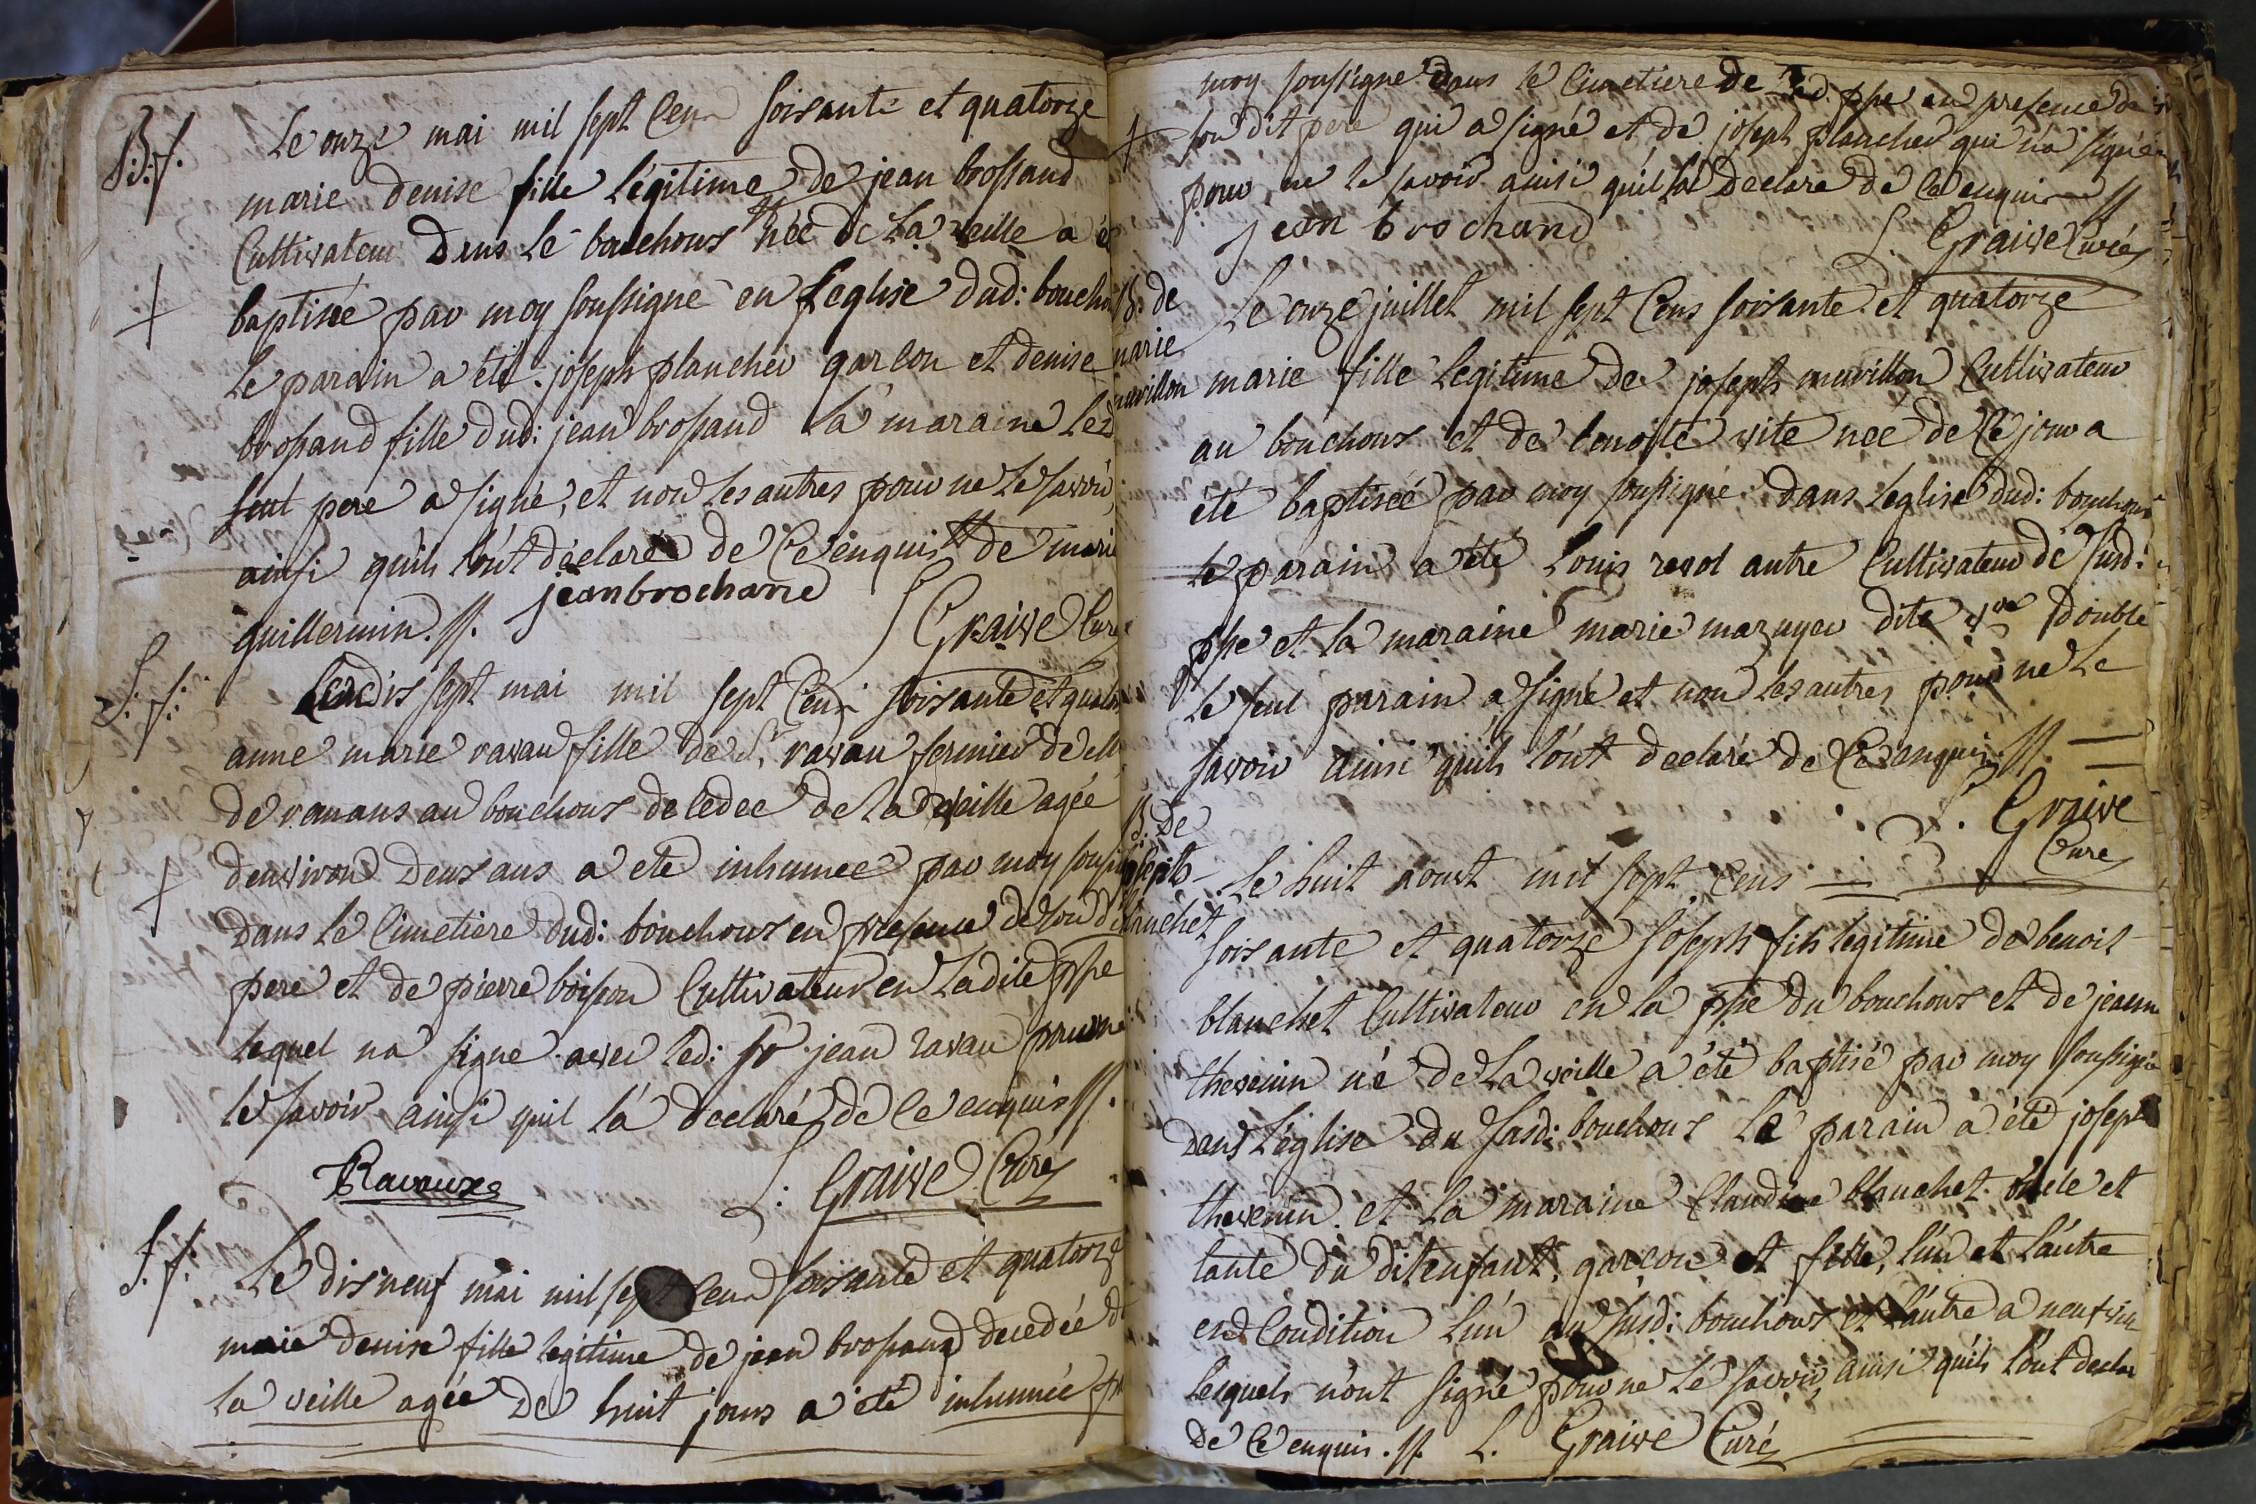 B. f.
Le onze mai mil sept Cens soisante et quatorze
marie denise fille légitime de jean brossand
Cultivateur Dens le bouchous née de la veille a é
baptisée par moy soussigné en l'eglise dud: boucho
Le parain a été joseph plancher garcon et denise
brossand fille dud: jean brossand la maraine led
seul pere a signé, et non les autres pour ne le savoir
ainsi quils l'ont déclaré de Ce enquis // de marie
guillermin. //. jean brochand
Graive Curé
S. f.
Le dis sept mai mil sept Cens soisante et quator
anne marie ravau fille de Sr ravau fermier de
de ranans au bouchous decedee de la veille agée
denviron deux ans a ete inhumee par moy soussi
dans le Cimetiere dud: bouchous en presence de son d
pere et de pierre boisson Cultivateur en ladite psse
lequel na signe avec led: Sr jean ravau pour ne
le savoir ainsi quil la declaré de Ce enquis //.
Ravaux
L: Graive Curé
S. f.
Le dis neuf mai mil sept Cens soisante et quatorze
marie denise fille legitime de jean brossand decedée de
la veille agée De huit jours a été inhumée p
moy soussigné dans le Cimetiere de lad. psse en presence de
son dit pere qui a signé et de joseph plancher qui na signé
pour ne le savoir ainsi quil la Declaré de Ce enquis //
jean brochand
L. Graive Curé
B. de
marie
murillon
Le onze juillet mil sept Cens soisante et quatorze
marie fille legitime de joseph murillon Cultivateur
au bouchous et de benoite vite née de Ce jour a
été baptisée par moy soussigné dans leglise dud: bouchous
le parain a été Louis revol autre Cultivateur de susd:
psse et la maraine marie mazuyer dite double
le seul parain a signé et non les autres pour ne le
savoir ainsi quils l'ont declaré de Ce enquis //.
L. Graive
Curé
B. De
joseph
blanchet
Le huit aoust mil sept Cens
soisante et quatorze joseph fils legitime de benoit
blanchet Cultivateur en la psse du bouchous et de jeann
thevenin né de la veille a été baptisé par moy soussigné
dans l'église du susd: bouchous le parain a été joseph
thevenin et la maraine Claudine blanchet oncle et
tante du dit enfant, garcon et fille, lun et l'autre
en Condition l'un au susd: bouchous et l'autre a neufvill
lesquels n'ont signé pour ne le savoir ainsi quils l'ont declar
de Ce enquis. //. L. Graive Curé